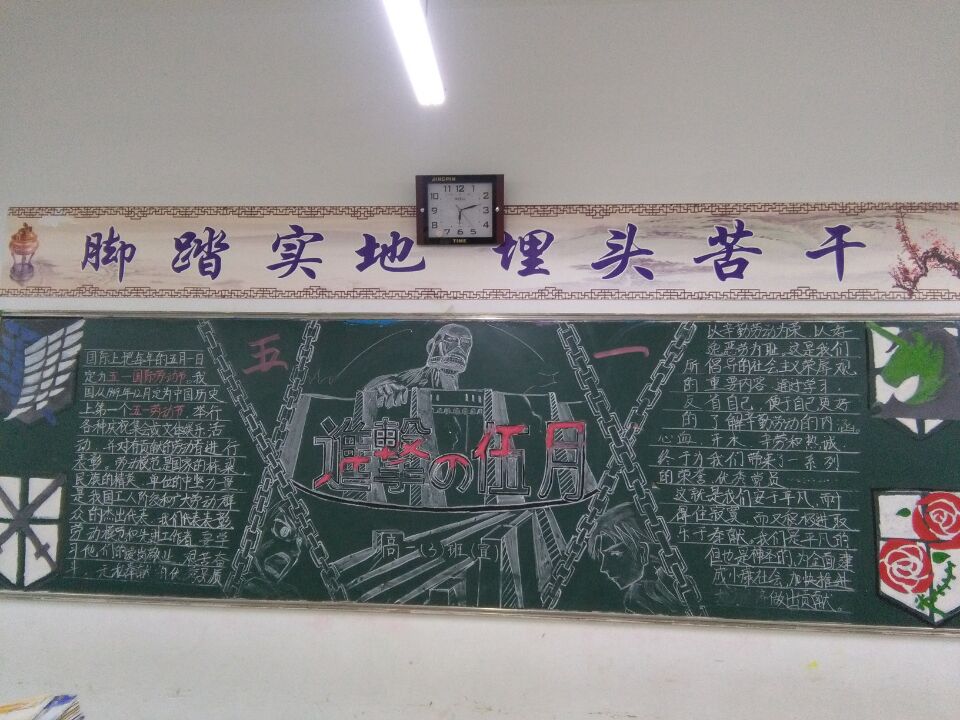 JINGPIN
11 12 1
10 2
9 3
8 4
7 6 5
TIME
脚踏实地 埋头苦干
五 一
国际上把每年的五月一日
定为五一国际劳动节。我
国从1949年12月定为中国历史
上第一个五一劳动节。举行
各种庆祝集会或文体娱乐活
动,并对有贡献的劳动者进行
表彰。劳动模范是国家的栋梁
民族的精英,单位的中坚力量
是我国工人阶级和广大劳动群
众的杰出代表,我们代表表彰
劳动模范和先进工作者,要学
习他们的爱岗敬业,艰苦奋
進擊の伍月
高二(3)班(宣)
以辛勤劳动为荣,以好
逸恶劳为耻,这是我们
所倡导的社会主义荣辱观
的重要内容。通过学习,
反省自己,便于自己更好
的了解辛勤劳动的内涵
心血,汗水,辛劳和热诚
终于为我们带来了一系列
的荣誉,优秀党员
这就是我们安于平凡,而
得住寂寞,而又积极进取
乐于奉献。我们是平凡的
但也是神圣的,为全面建
成小康社会,加快推进
做出贡献。